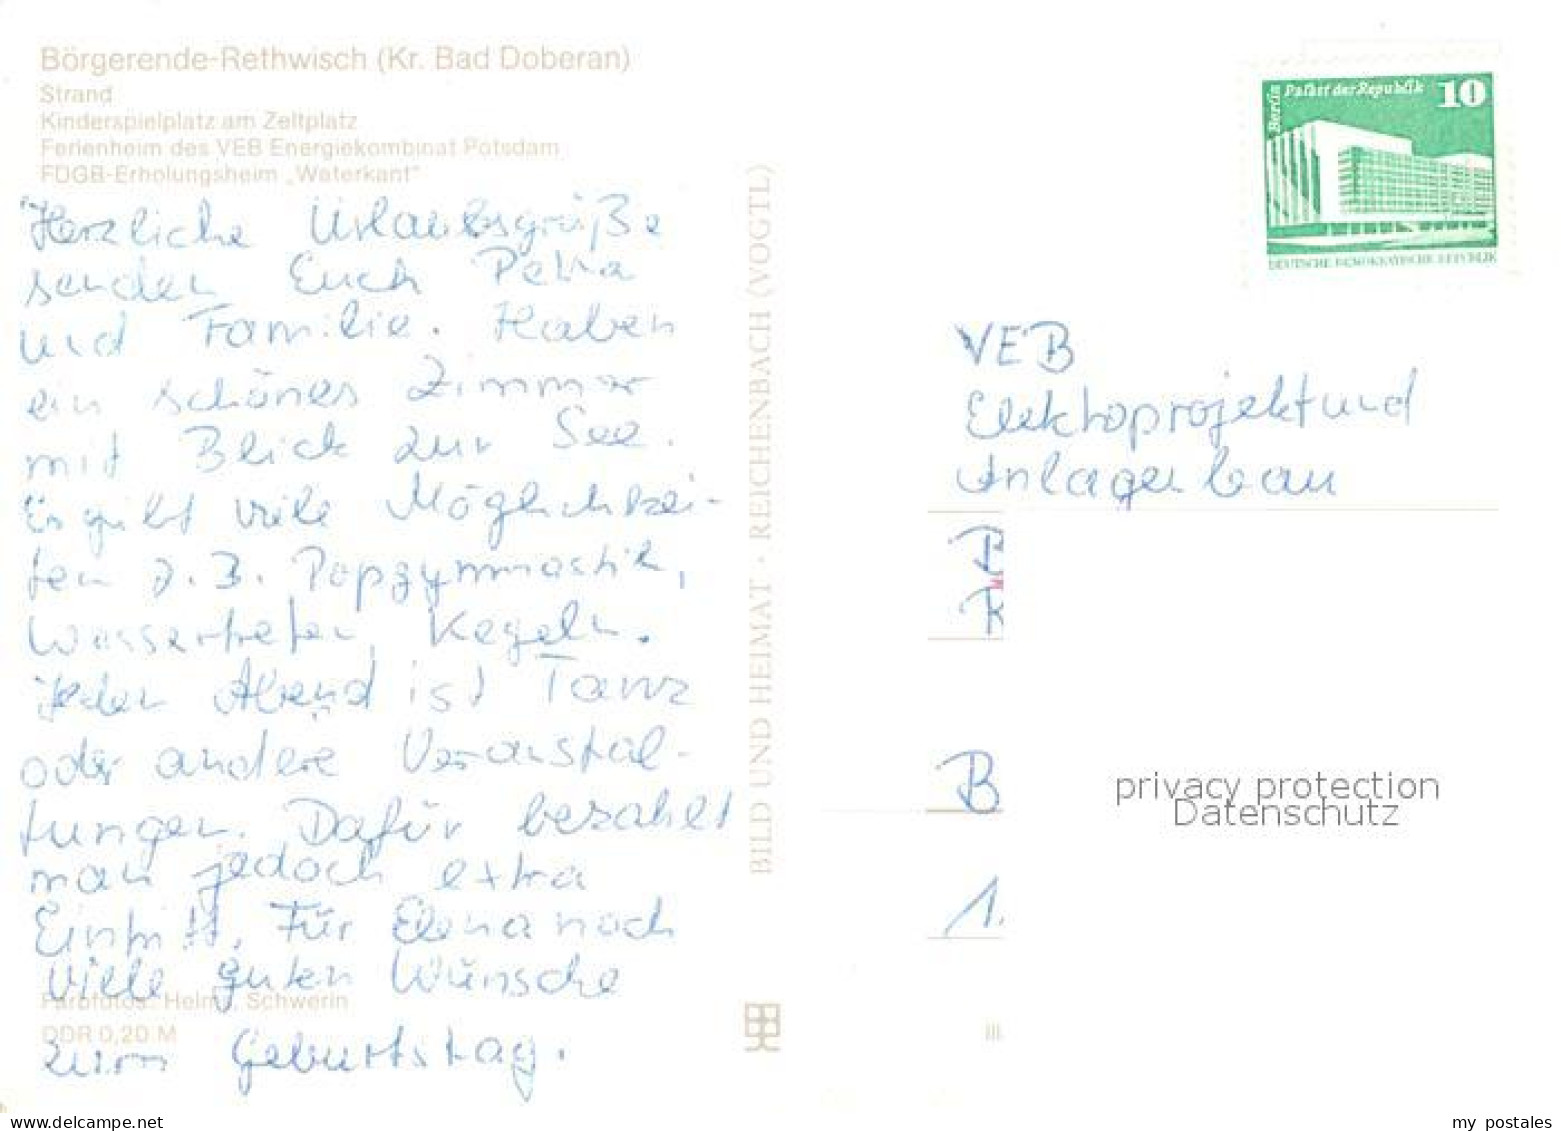 Börgerende-Rethwisch (Kr. Bad Doberan)
Strand
Kinderspielplatz am Zeltplatz
Ferienheim des VEB Energiekombinat Potsdam
FDGB-Erholungsheim „Waterkant"
Herzliche Urlaubsgrüße
senden Euch Petra
und Familie. Haben
ein schönes Zimmer
mit Blick zur See.
Es gibt viele Möglichkei-
ten z.B. Popgymnastik,
Wassertreten, Kegeln.
Jeden Abend ist Tanz
oder andere Veranstal-
tungen. Dafür bezahlt
man jedoch extra
Eintritt. Für Elena noch
viele guten Wünsche
zum Geburtstag.
Farbfotos: Helms, Schwerin
DDR 0,20 M
BILD UND HEIMAT · REICHENBACH (VOGTL)
Berlin Palast der Republik 10
DEUTSCHE DEMOKRATISCHE REPUBLIK
VEB
Elektroprojekt und
Anlagenbau
B
1.
privacy protection
Datenschutz
my postales